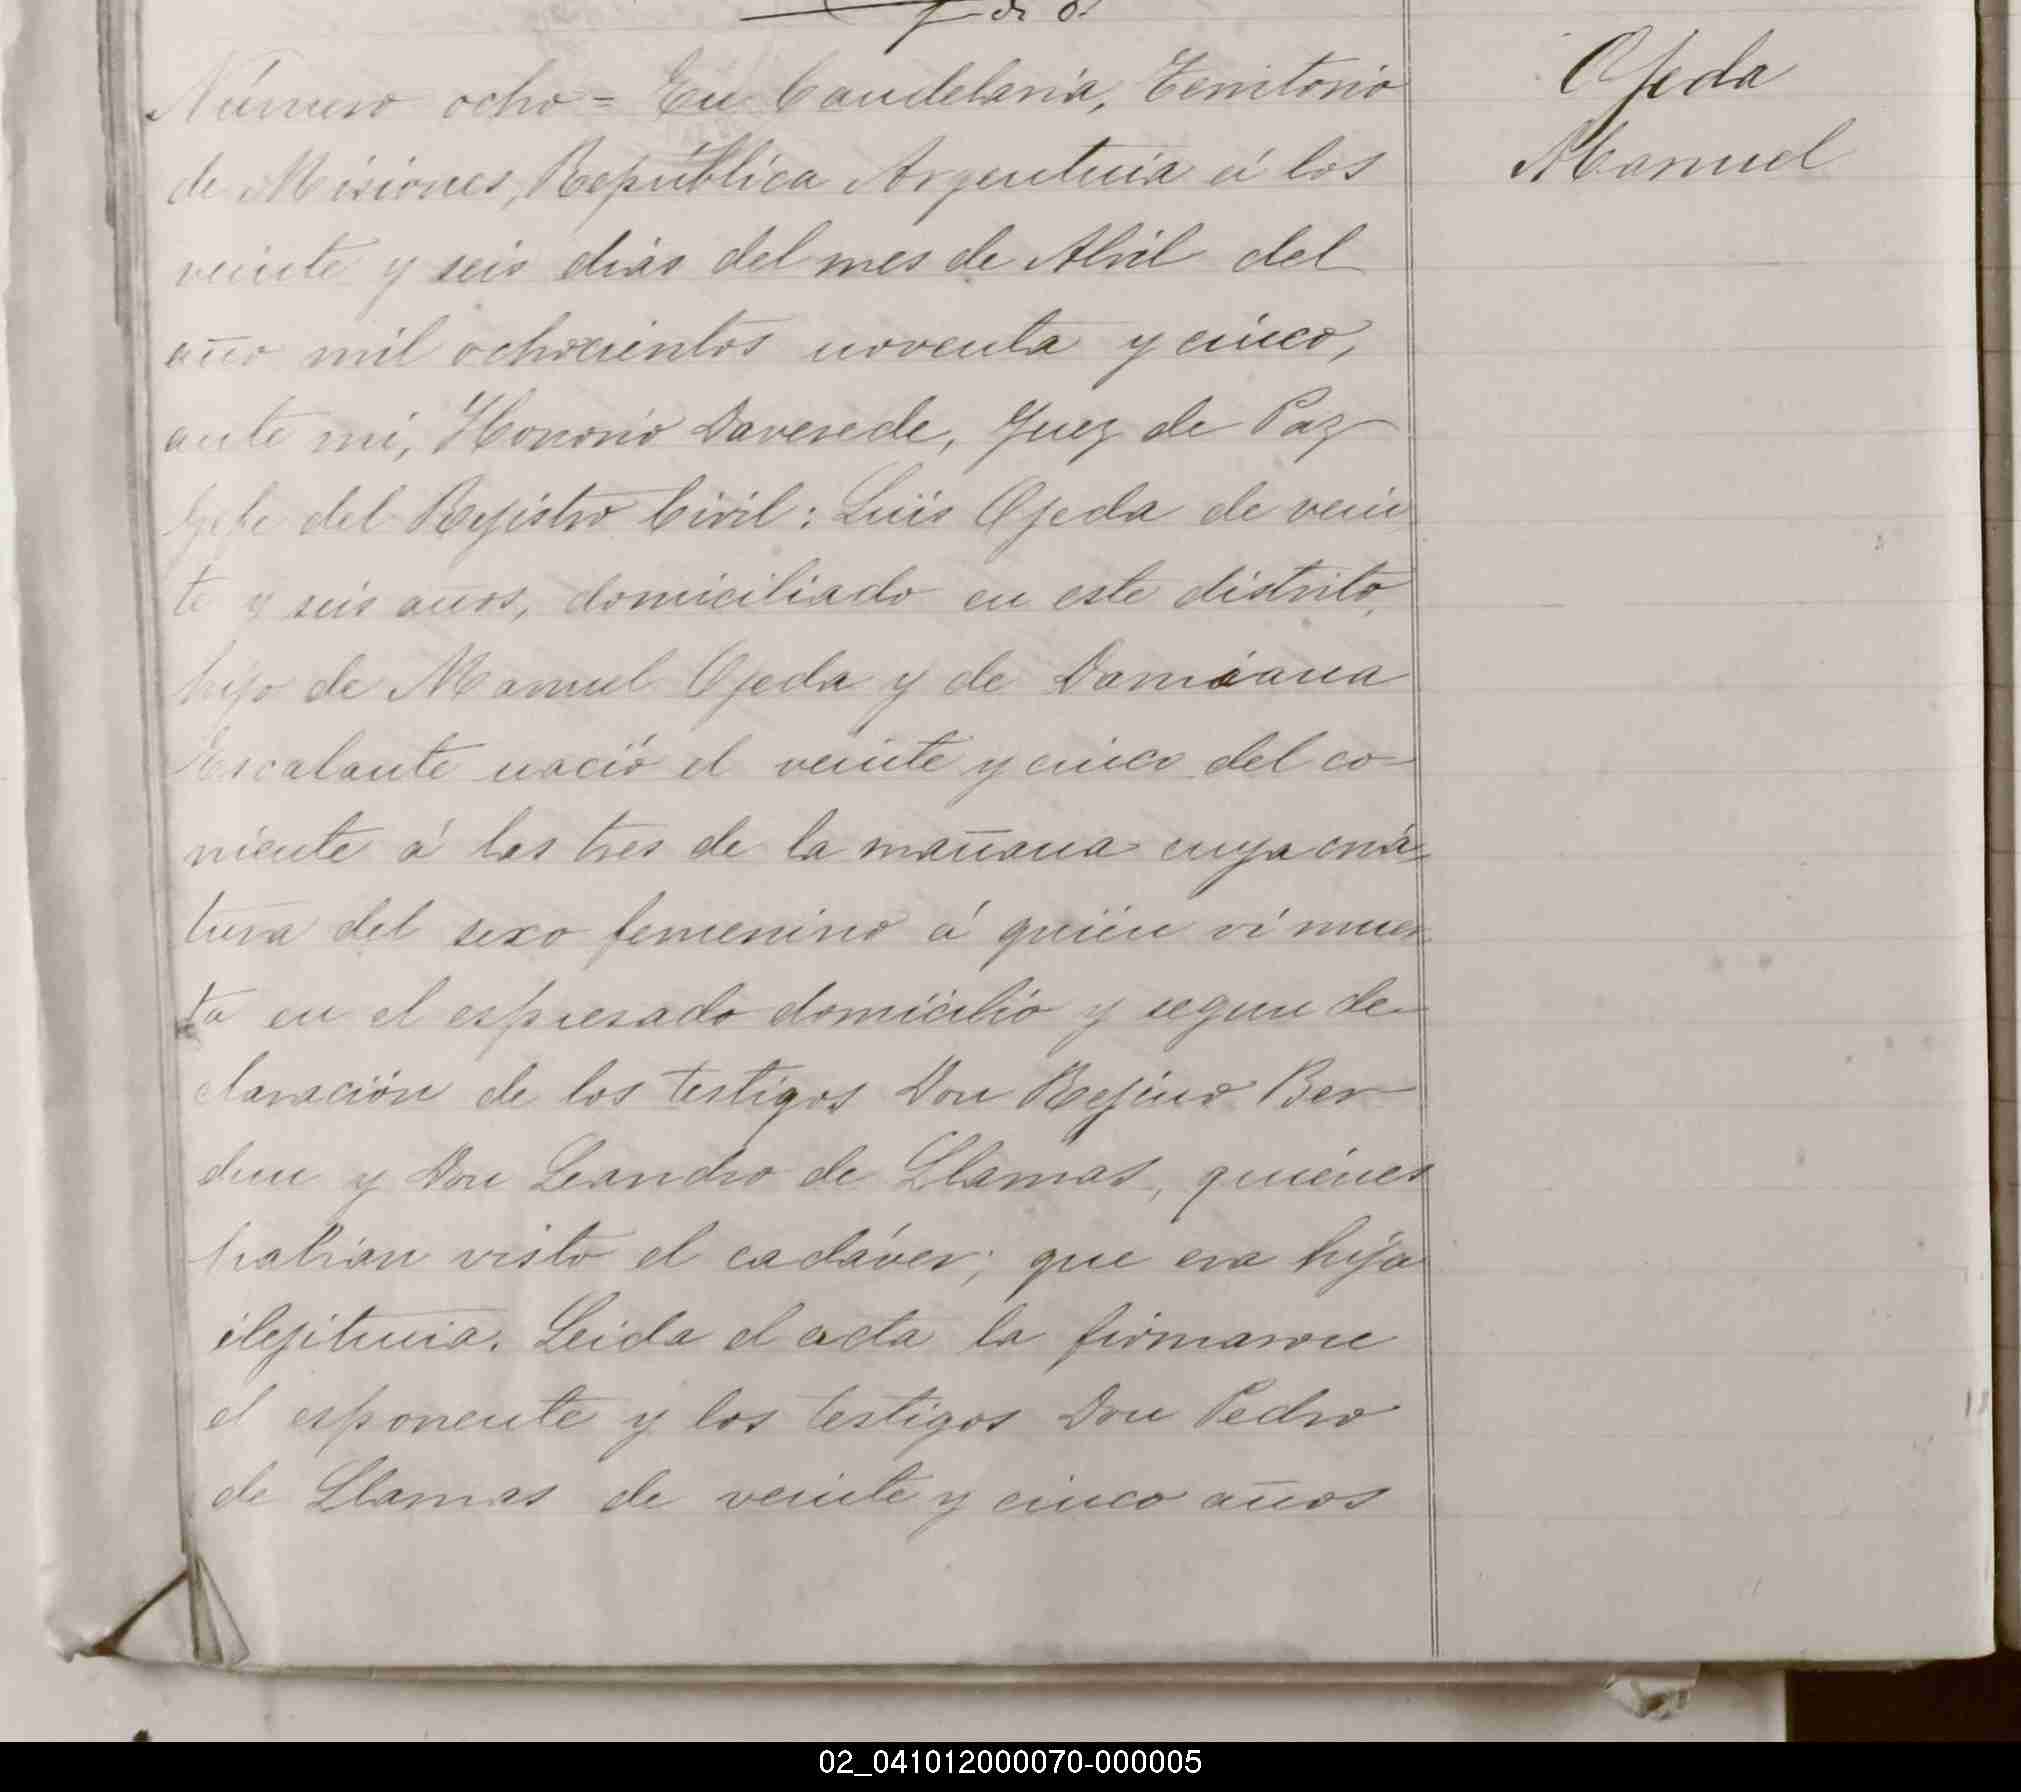 J. de P.
Número ocho = En Candelaria, Territorio
de Misiones, República Argentina á los
veinte y seis dias del mes de Abril del
año mil ochocientos noventa y cinco,
ante mi, Honorio Daverede, Juez de Paz
Gefe del Rejistro Civil: Luis Ojeda de vein
te y seis años, domiciliado en este distrito,
hijo de Manuel Ojeda y de Damiana
Escalante nació el veinte y cinco del co-
rriente á las tres de la mañana cuya cria-
tura del sexo femenino á quién ví muer-
ta en el espresado domicilio y segun de-
claración de los testigos Don Rejino Ber
dun y Don Leandro de Llamas, quiénes
habian visto el cadáver; que era hija
ilejitima. Leida el acta la firmaron
el esponente y los testigos Don Pedro
de Llamas de veinte y cinco años
Ojeda
Manuel
02_041012000070-000005